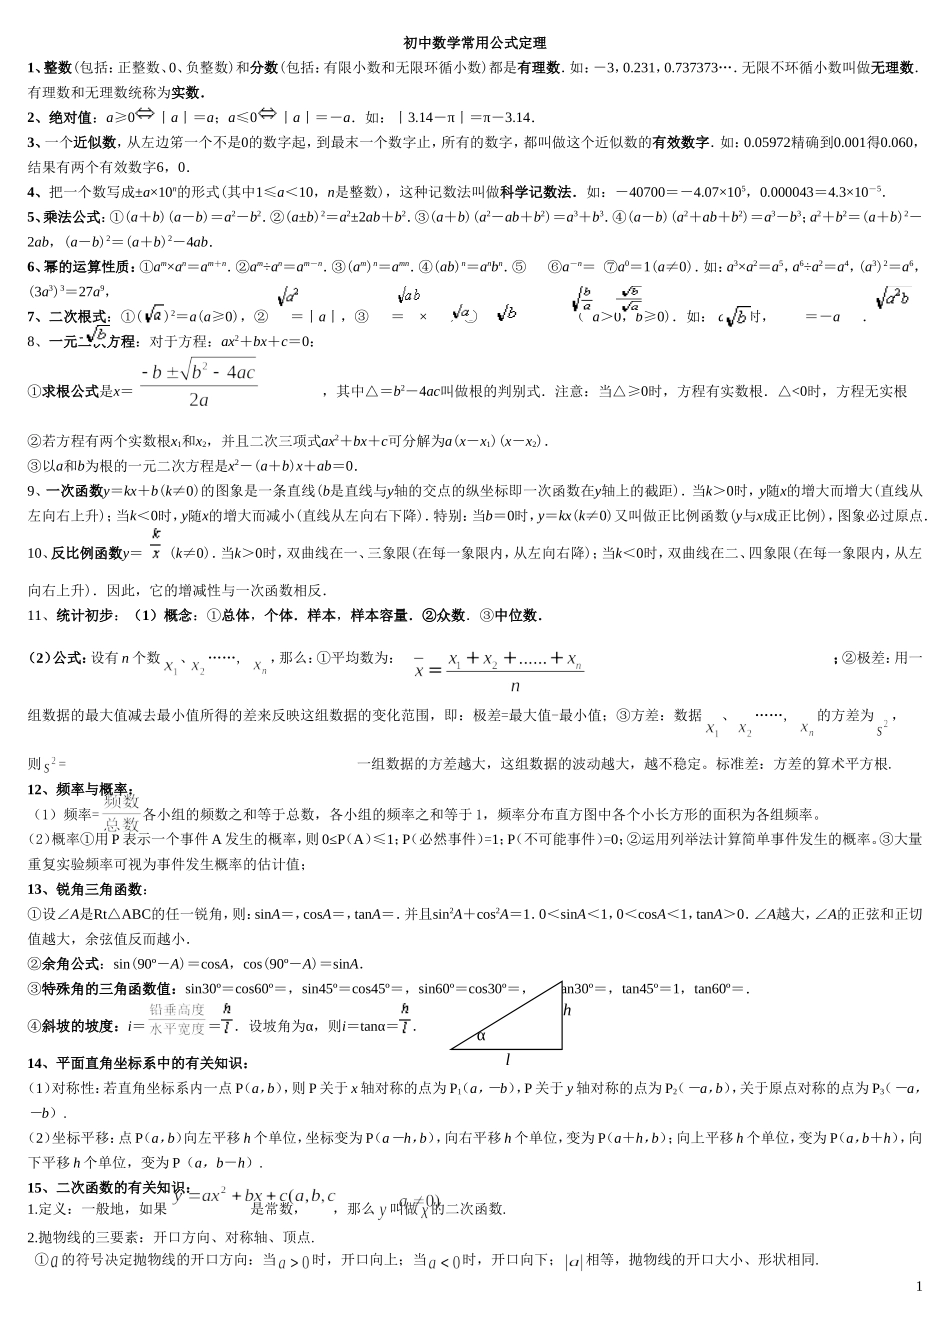 初中数学常用公式定理
1、整数(包括:正整数、0、负整数)和分数(包括:有限小数和无限环循小数)都是有理数.如:-3,0.231,0.737373….无限不环循小数叫做无理数.
有理数和无理数统称为实数.
2、绝对值:a≥0⇔丨a丨=a;a≤0⇔丨a丨=-a.如:丨3.14-π丨=π-3.14.
3、一个近似数,从左边笫一个不是0的数字起,到最末一个数字止,所有的数字,都叫做这个近似数的有效数字.如:0.05972精确到0.001得0.060,
结果有两个有效数字6,0.
4、把一个数写成±a×10ⁿ的形式(其中1≤a<10,n是整数),这种记数法叫做科学记数法.如:-40700=-4.07×10⁵,0.000043=4.3×10⁻⁵.
5、乘法公式:①(a+b)(a-b)=a²-b².②(a±b)²=a²±2ab+b².③(a+b)(a²-ab+b²)=a³+b³.④(a-b)(a²+ab+b²)=a³-b³;a²+b²=(a+b)²-
2ab,(a-b)²=(a+b)²-4ab.
6、幂的运算性质:①aᵐ×aⁿ=aᵐ⁺ⁿ.②aᵐ÷aⁿ=aᵐ⁻ⁿ.③(aᵐ)ⁿ=aᵐⁿ.④(ab)ⁿ=aⁿbⁿ.⑤ ⑥a⁻ⁿ= ⑦a⁰=1(a≠0).如:a³×a²=a⁵,a⁶÷a²=a⁴,(a³)²=a⁶,
(3a³)³=27a⁹,
7、二次根式:①(√a)²=a(a≥0),②√a²=丨a丨,③√ab=√a×√b, √b/a √b/√a ( a>0,b≥0).如: a√b时,√a²b=-a√b.
8、一元二次方程:对于方程:ax²+bx+c=0:
①求根公式是x=(-b±√(b²-4ac))/2a,其中△=b²-4ac叫做根的判别式.注意:当△≥0时,方程有实数根.△<0时,方程无实根
②若方程有两个实数根x₁和x₂,并且二次三项式ax²+bx+c可分解为a(x-x₁)(x-x₂).
③以a和b为根的一元二次方程是x²-(a+b)x+ab=0.
9、一次函数y=kx+b(k≠0)的图象是一条直线(b是直线与y轴的交点的纵坐标即一次函数在y轴上的截距).当k>0时,y随x的增大而增大(直线从
左向右上升);当k<0时,y随x的增大而减小(直线从左向右下降).特别:当b=0时,y=kx(k≠0)又叫做正比例函数(y与x成正比例),图象必过原点.
10、反比例函数y=k/x(k≠0).当k>0时,双曲线在一、三象限(在每一象限内,从左向右降);当k<0时,双曲线在二、四象限(在每一象限内,从左
向右上升).因此,它的增减性与一次函数相反.
11、统计初步:(1)概念:①总体,个体.样本,样本容量.②众数.③中位数.
(2)公式:设有n个数x₁、x₂……, xₙ,那么:①平均数为:x̄=(x₁+x₂+......+xₙ)/n;②极差:用一
组数据的最大值减去最小值所得的差来反映这组数据的变化范围,即:极差=最大值-最小值;③方差:数据x₁、x₂……, xₙ的方差为s²,
则s²= 一组数据的方差越大,这组数据的波动越大,越不稳定。标准差:方差的算术平方根.
12、频率与概率:
(1)频率=频数/总数各小组的频数之和等于总数,各小组的频率之和等于1,频率分布直方图中各个小长方形的面积为各组频率。
(2)概率①用P表示一个事件A发生的概率,则0≤P(A)≤1;P(必然事件)=1;P(不可能事件)=0;②运用列举法计算简单事件发生的概率。③大量
重复实验频率可视为事件发生概率的估计值;
13、锐角三角函数:
①设∠A是Rt△ABC的任一锐角,则:sinA=,cosA=,tanA=.并且sin²A+cos²A=1.0<sinA<1,0<cosA<1,tanA>0.∠A越大,∠A的正弦和正切
值越大,余弦值反而越小.
②余角公式:sin(90º-A)=cosA,cos(90º-A)=sinA.
③特殊角的三角函数值:sin30º=cos60º=,sin45º=cos45º=,sin60º=cos30º=, an30º=,tan45º=1,tan60º=.
④斜坡的坡度:i=铅垂高度/水平宽度=h/l.设坡角为α,则i=tanα=h/l.
h
α
l
14、平面直角坐标系中的有关知识:
(1)对称性:若直角坐标系内一点P(a,b),则P关于x轴对称的点为P₁(a,-b),P关于y轴对称的点为P₂(-a,b),关于原点对称的点为P₃(-a,
-b).
(2)坐标平移:点P(a,b)向左平移h个单位,坐标变为P(a-h,b),向右平移h个单位,变为P(a+h,b);向上平移h个单位,变为P(a,b+h),向
下平移h个单位,变为P(a,b-h).
15、二次函数的有关知识:
1.定义:一般地,如果y=ax²+bx+c(a,b,c是常数,a≠0),那么y叫做x的二次函数.
2.抛物线的三要素:开口方向、对称轴、顶点.
①a的符号决定抛物线的开口方向:当a>0时,开口向上;当a<0时,开口向下;|a|相等,抛物线的开口大小、形状相同.
1